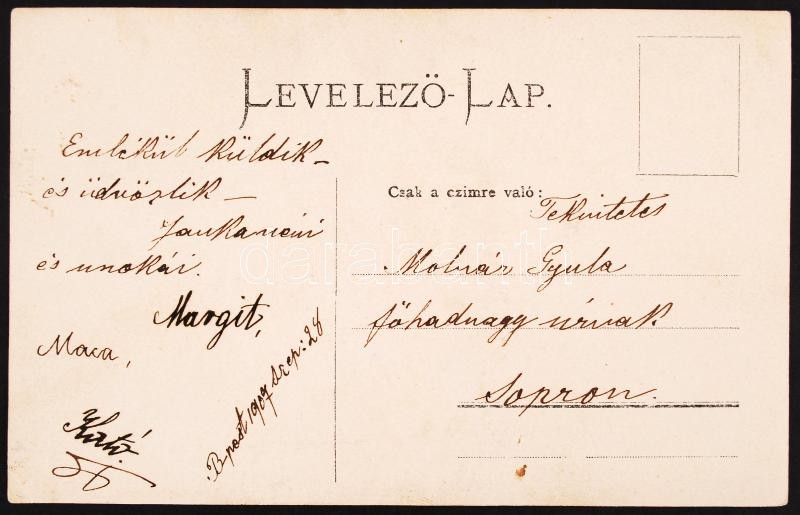 LEVELEZÖ-LAP.
Emlékül küldik –
és üdvözlik –
Jankanéni
és unokái.
Margit,
Maca,
Kató
Bpest 1907 szep: 28
Csak a czimre való:
Tekintetes
Molnár Gyula
főhadnagy úrnak.
Sopron.
darabanth